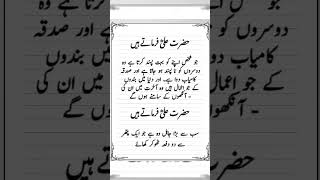 حضرت علیؓ فرماتے ہیں
جو شخص اپنے کو بہت پسند کرتا ہے وہ
دوسروں کو نا پسند ہو جاتا ہے اور صدقہ
کامیاب دوا ہے۔ اور دنیا میں بندوں
کے جو اعمال ہیں وہ آخرت میں ان کی
آنکھوں کے سامنے ہوں گے -
حضرت علیؓ فرماتے ہیں
سب سے بڑا جاہل وہ ہے جو ایک پتھر
سے دو دفعہ ٹھوکر کھائے